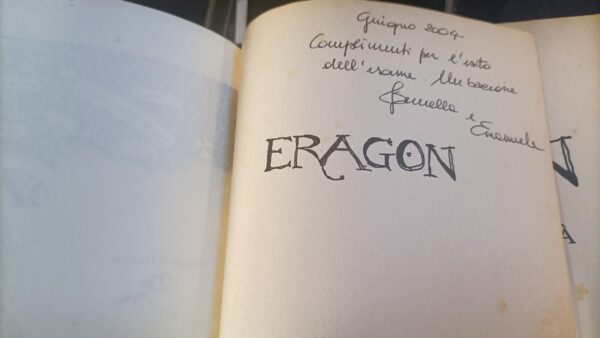 Giugno 2004
Complimenti per l'esito
dell'esame. Un bacione
e
Emanuele
ERAGON
N
À